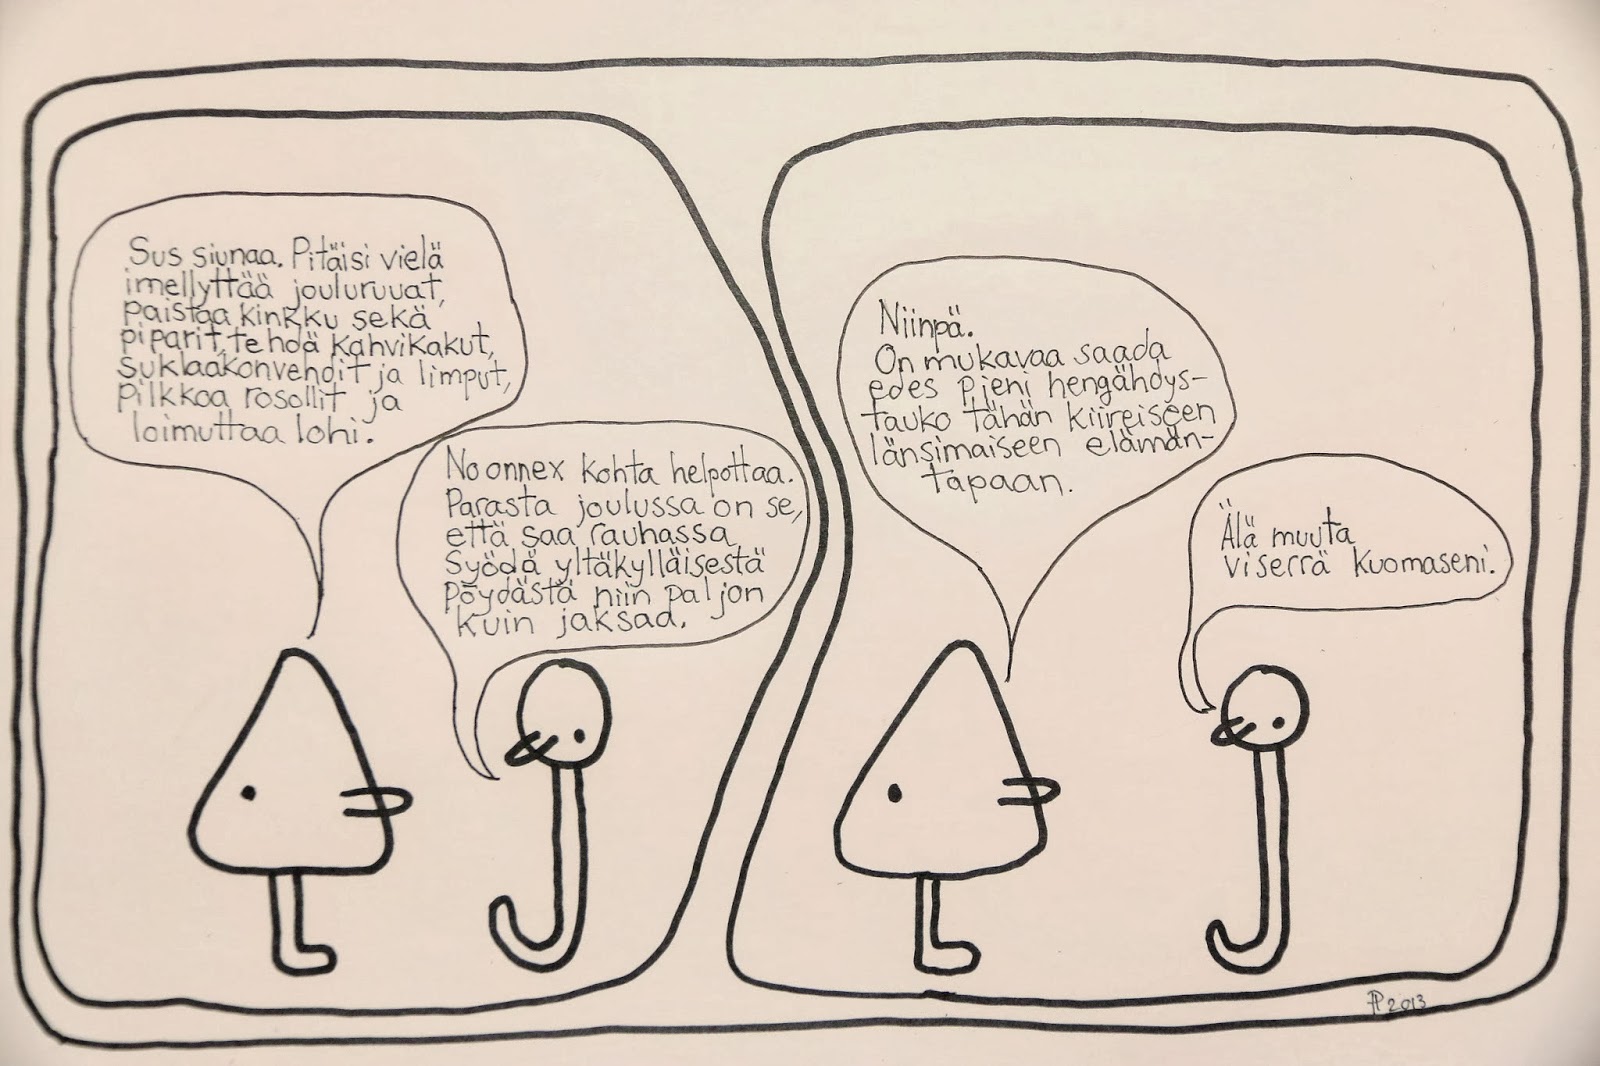 Sus siunaa. Pitäisi vielä
imellyttää jouluruuat,
paistaa kinkku sekä
piparit, tehdä kahvikakut,
suklaakonvehdit ja limput,
pilkkoa rosollit ja
loimuttaa lohi.
No onnex kohta helpottaa.
Parasta joulussa on se,
että saa rauhassa
syödä yltäkylläisestä
pöydästä niin paljon
kuin jaksaa.
Niinpä.
On mukavaa saada
edes pieni hengähdys-
tauko tähän kiireiseen
länsimaiseen elämän-
tapaan.
Älä muuta
viserrä kuomaseni.
PP 2013